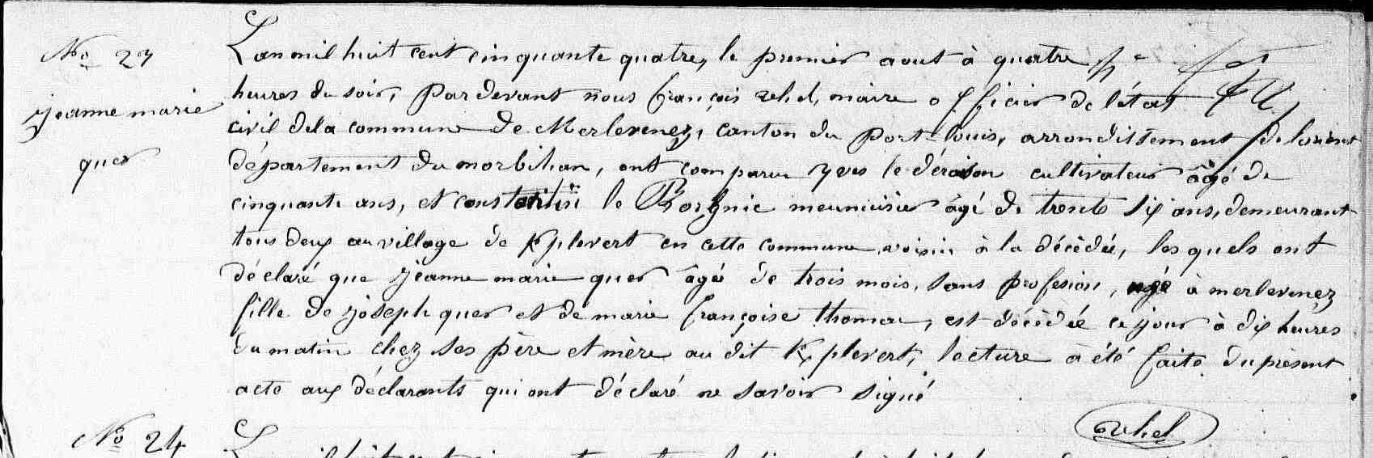 No 23
jeanne marie
quer
L'an mil huit cent cinquante quatre, le premier aout à quatre
heures du soir, Pardevant nous françois ezhel, maire officier de l'état
civil dela commune de Merlevenez, canton du Port-louis, arrondissement de lorient
département du morbihan, ont comparu yves le dérion cultivateur âgé de
cinquante ans, et constantin le Borgnic meunieusier âgé de trente six ans, demeurant
tous deux au village de Kplevert en cette commune voisin à la décédée, les quels ont
déclaré que jeanne marie quer âgé de trois mois, sans profesion, née à merlevenez
fille de joseph quer et de marie françoise thomas, est décédée ce jour à dix heures
du matin chez ses père et mère au dit Kplevert, lecture a été faite du présent
acte aux déclarants qui ont déclaré ne savoir signé
ezhel
No 24